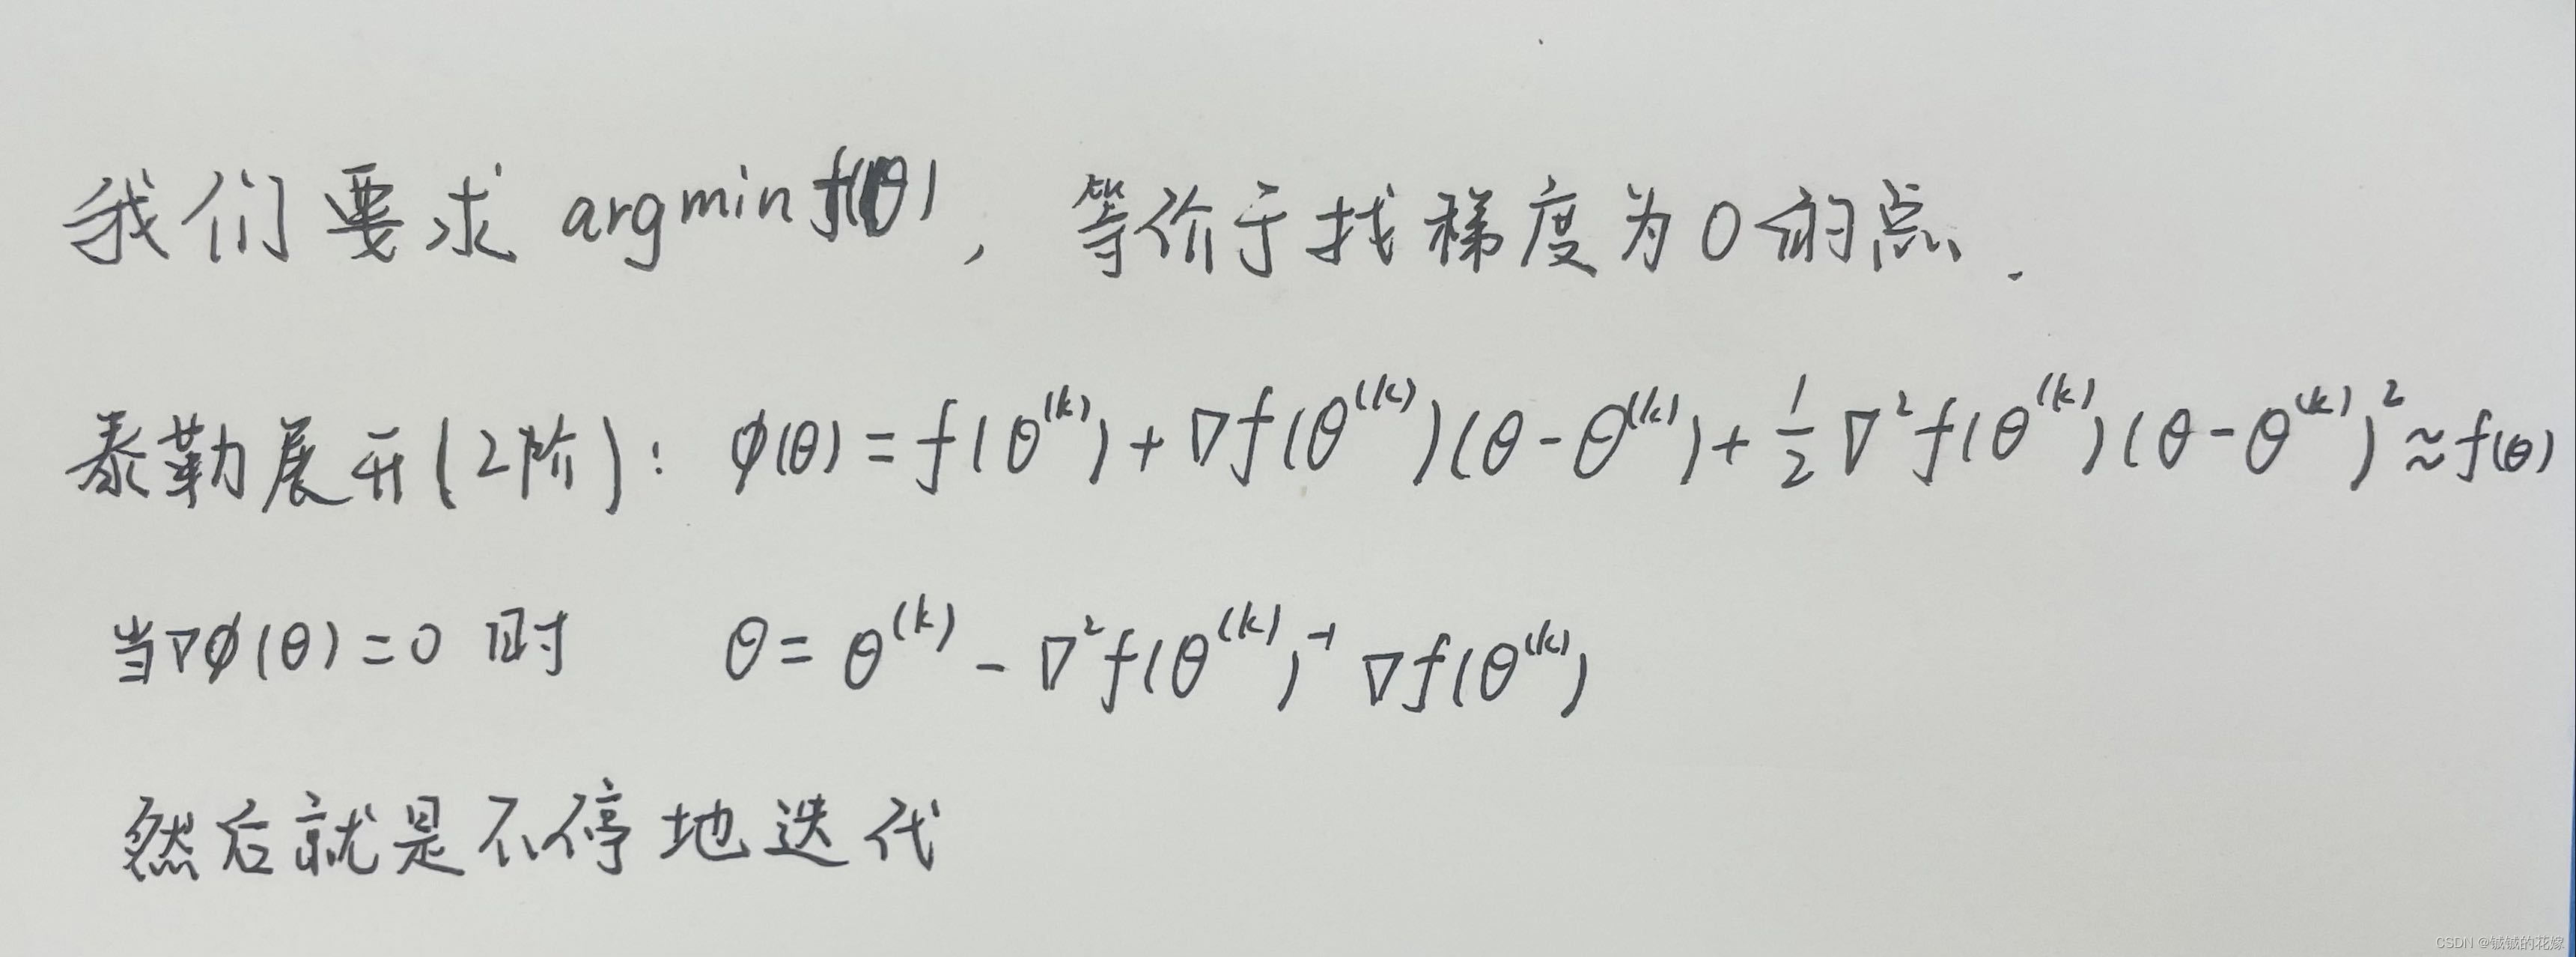 我们要求 argmin f(θ), 等价于找梯度为0的点.
泰勒展开(2阶): φ(θ) = f(θ^(k)) + ∇f(θ^(k))(θ-θ^(k)) + 1/2 ∇²f(θ^(k))(θ-θ^(k))² ≈ f(θ)
当∇φ(θ)=0 时 θ = θ^(k) - ∇²f(θ^(k))^-1 ∇f(θ^(k))
然后就是不停地迭代
CSDN @铖铖的花嫁